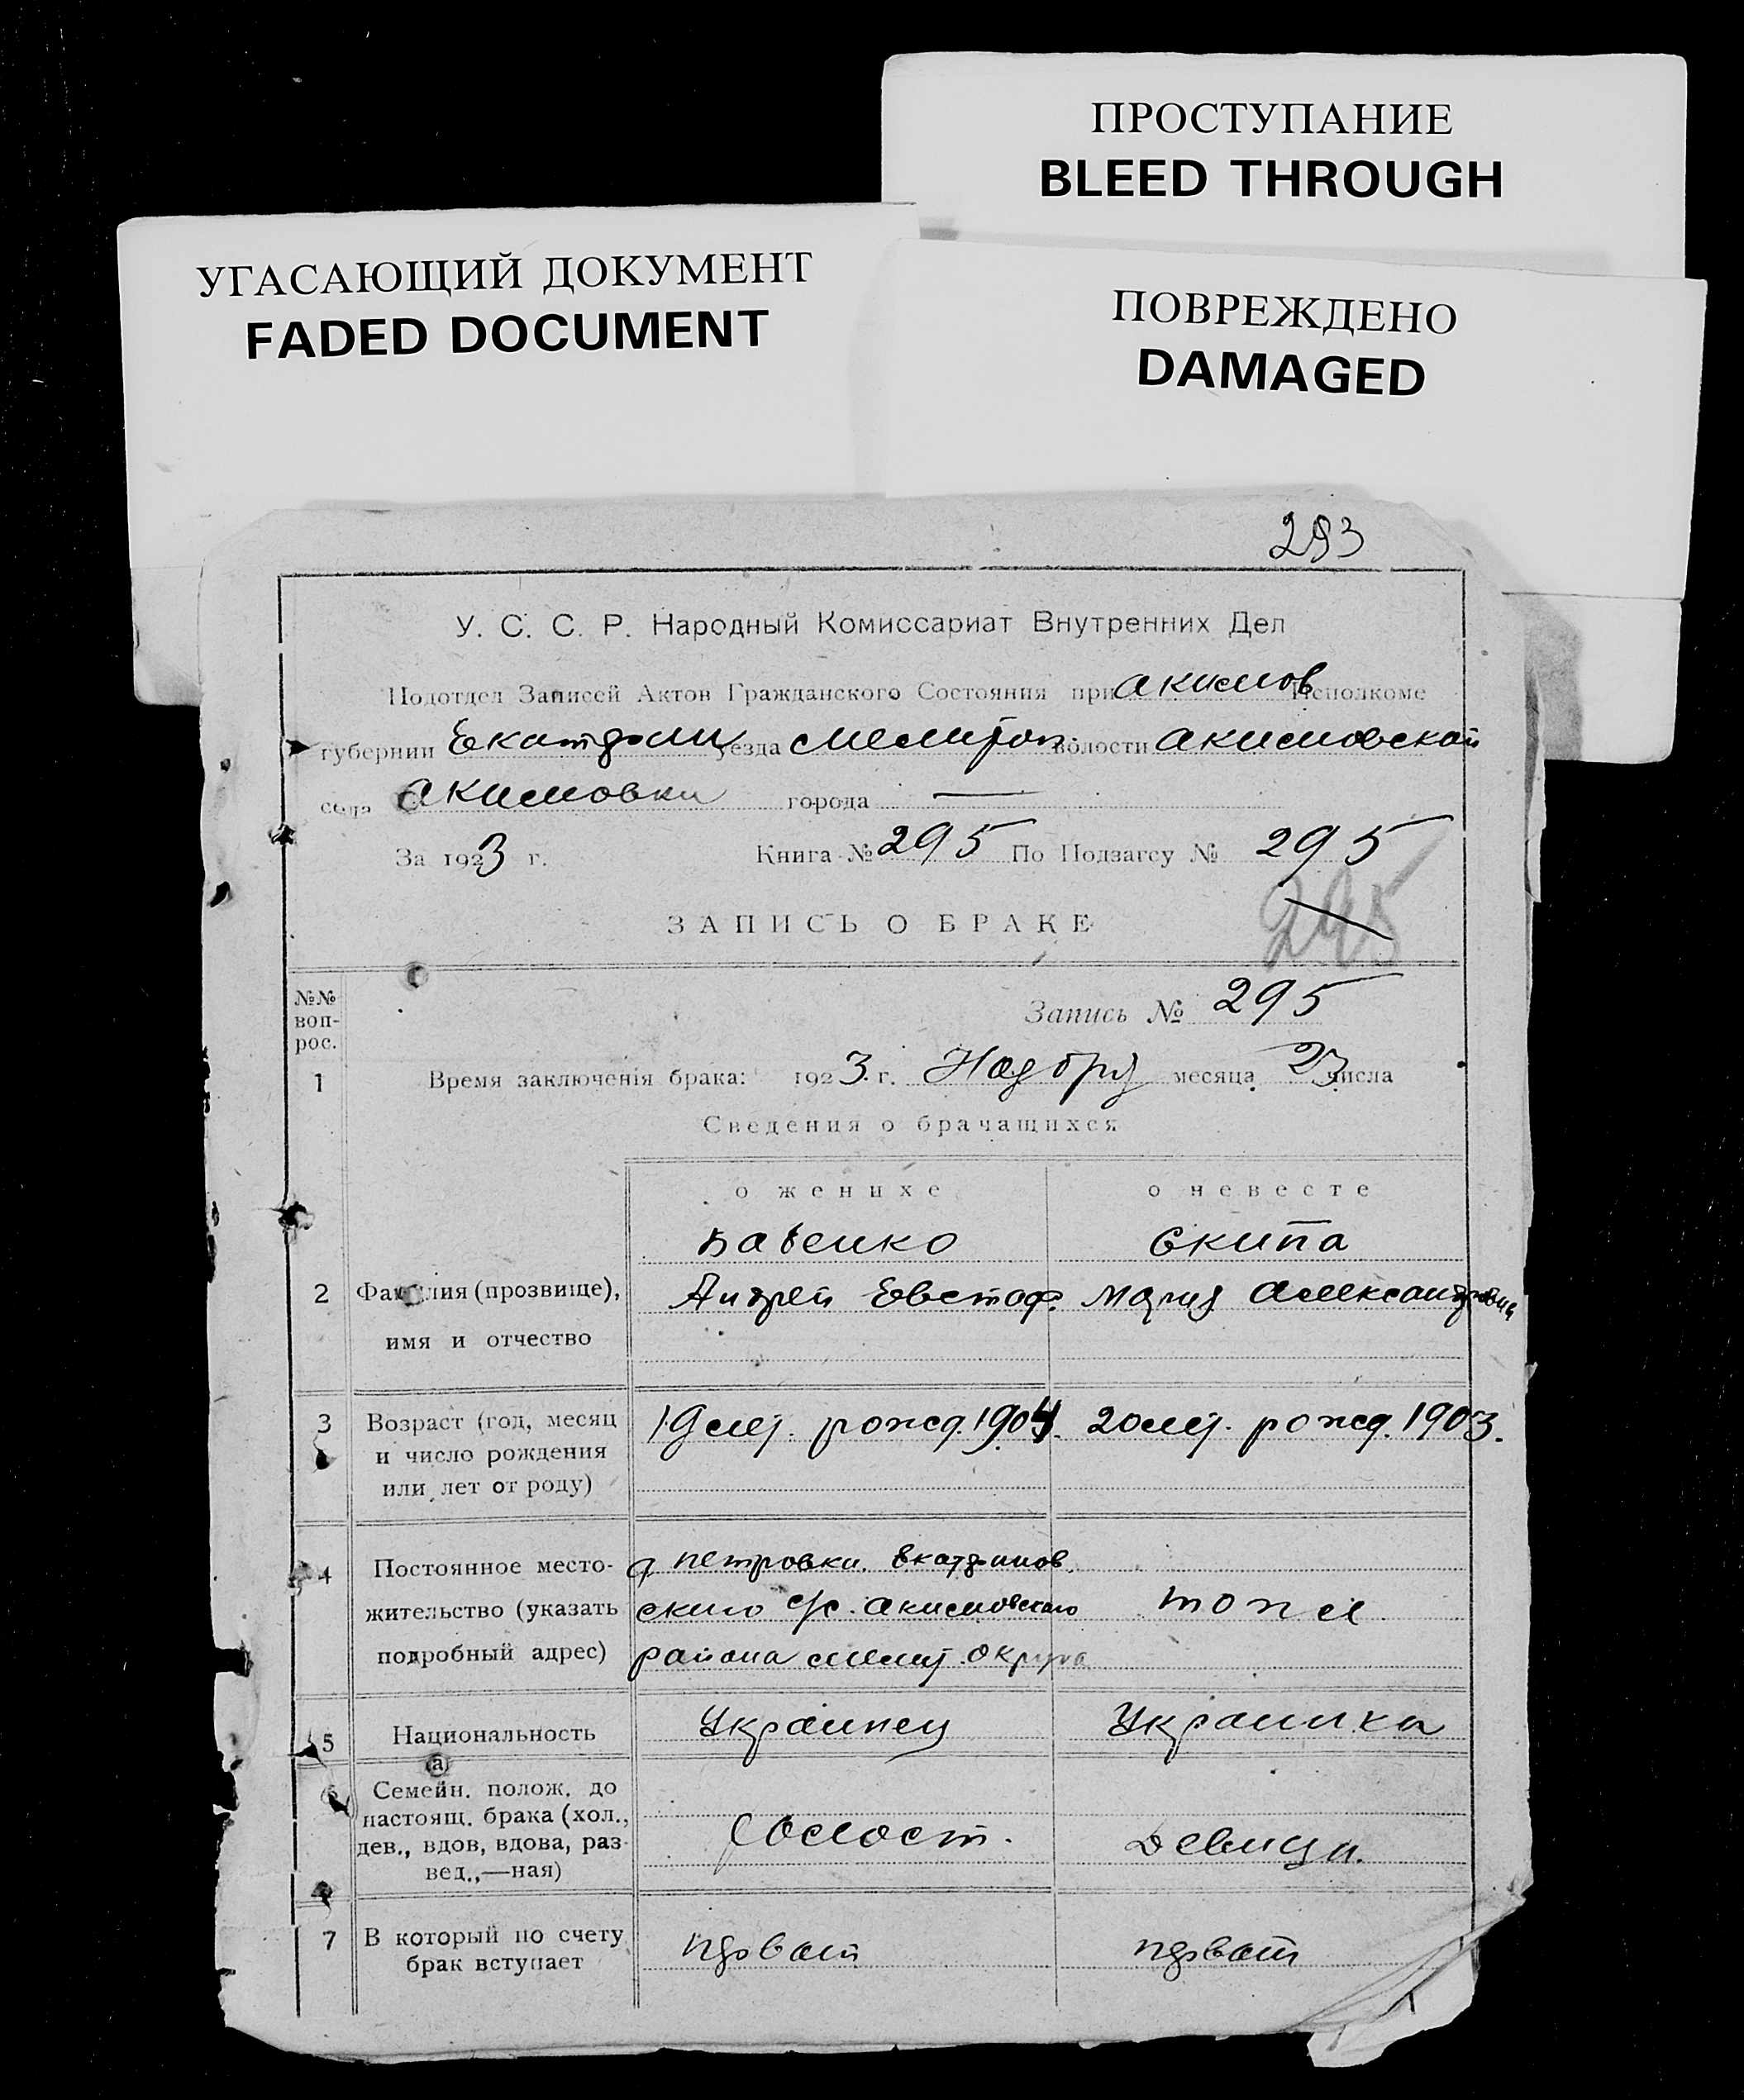 ПРОСТУПАНИЕ
BLEED THROUGH
УГАСАЮЩИЙ ДОКУМЕНТ
FADED DOCUMENT
ПОВРЕЖДЕНО
DAMAGED
293
У. С. С. Р. Народный Комиссариат Внутренних Дел
Подотдел Записей Актов Гражданского Состояния при Акимов Исполкоме
губернии уезда Мелитоп. волости Акимовской
села Акимовки города —
За 1923 г. Книга № 295 По Подзагсу № 295
295
ЗАПИСЬ О БРАКЕ
№№ воп-
рос.
Запись № 295
1 Время заключенія брака: 1923 г. Ноября месяца 23 числа
Сведения о брачащихся
о женихе о невесте
Бабенко Скипа
2 Фамилия (прозвище), Андрей Евстаф. Мария Александровна
имя и отчество
3 Возраст (год, месяц 19 лет. рожд. 1904. 20 лет. рожд. 1903.
и число рождения
или лет от роду)
4 Постоянное место- Петровки.
жительство (указать ского с/с. Акимовского то же
подробный адрес) района Мелит. округа
5 Национальность Украинец Украинка
(а)
6 Семейн. полож. до
настоящ. брака (хол.,
дев., вдов, вдова, раз- Холост. Девица.
вед.,—ная)
7 В который по счету
брак вступает